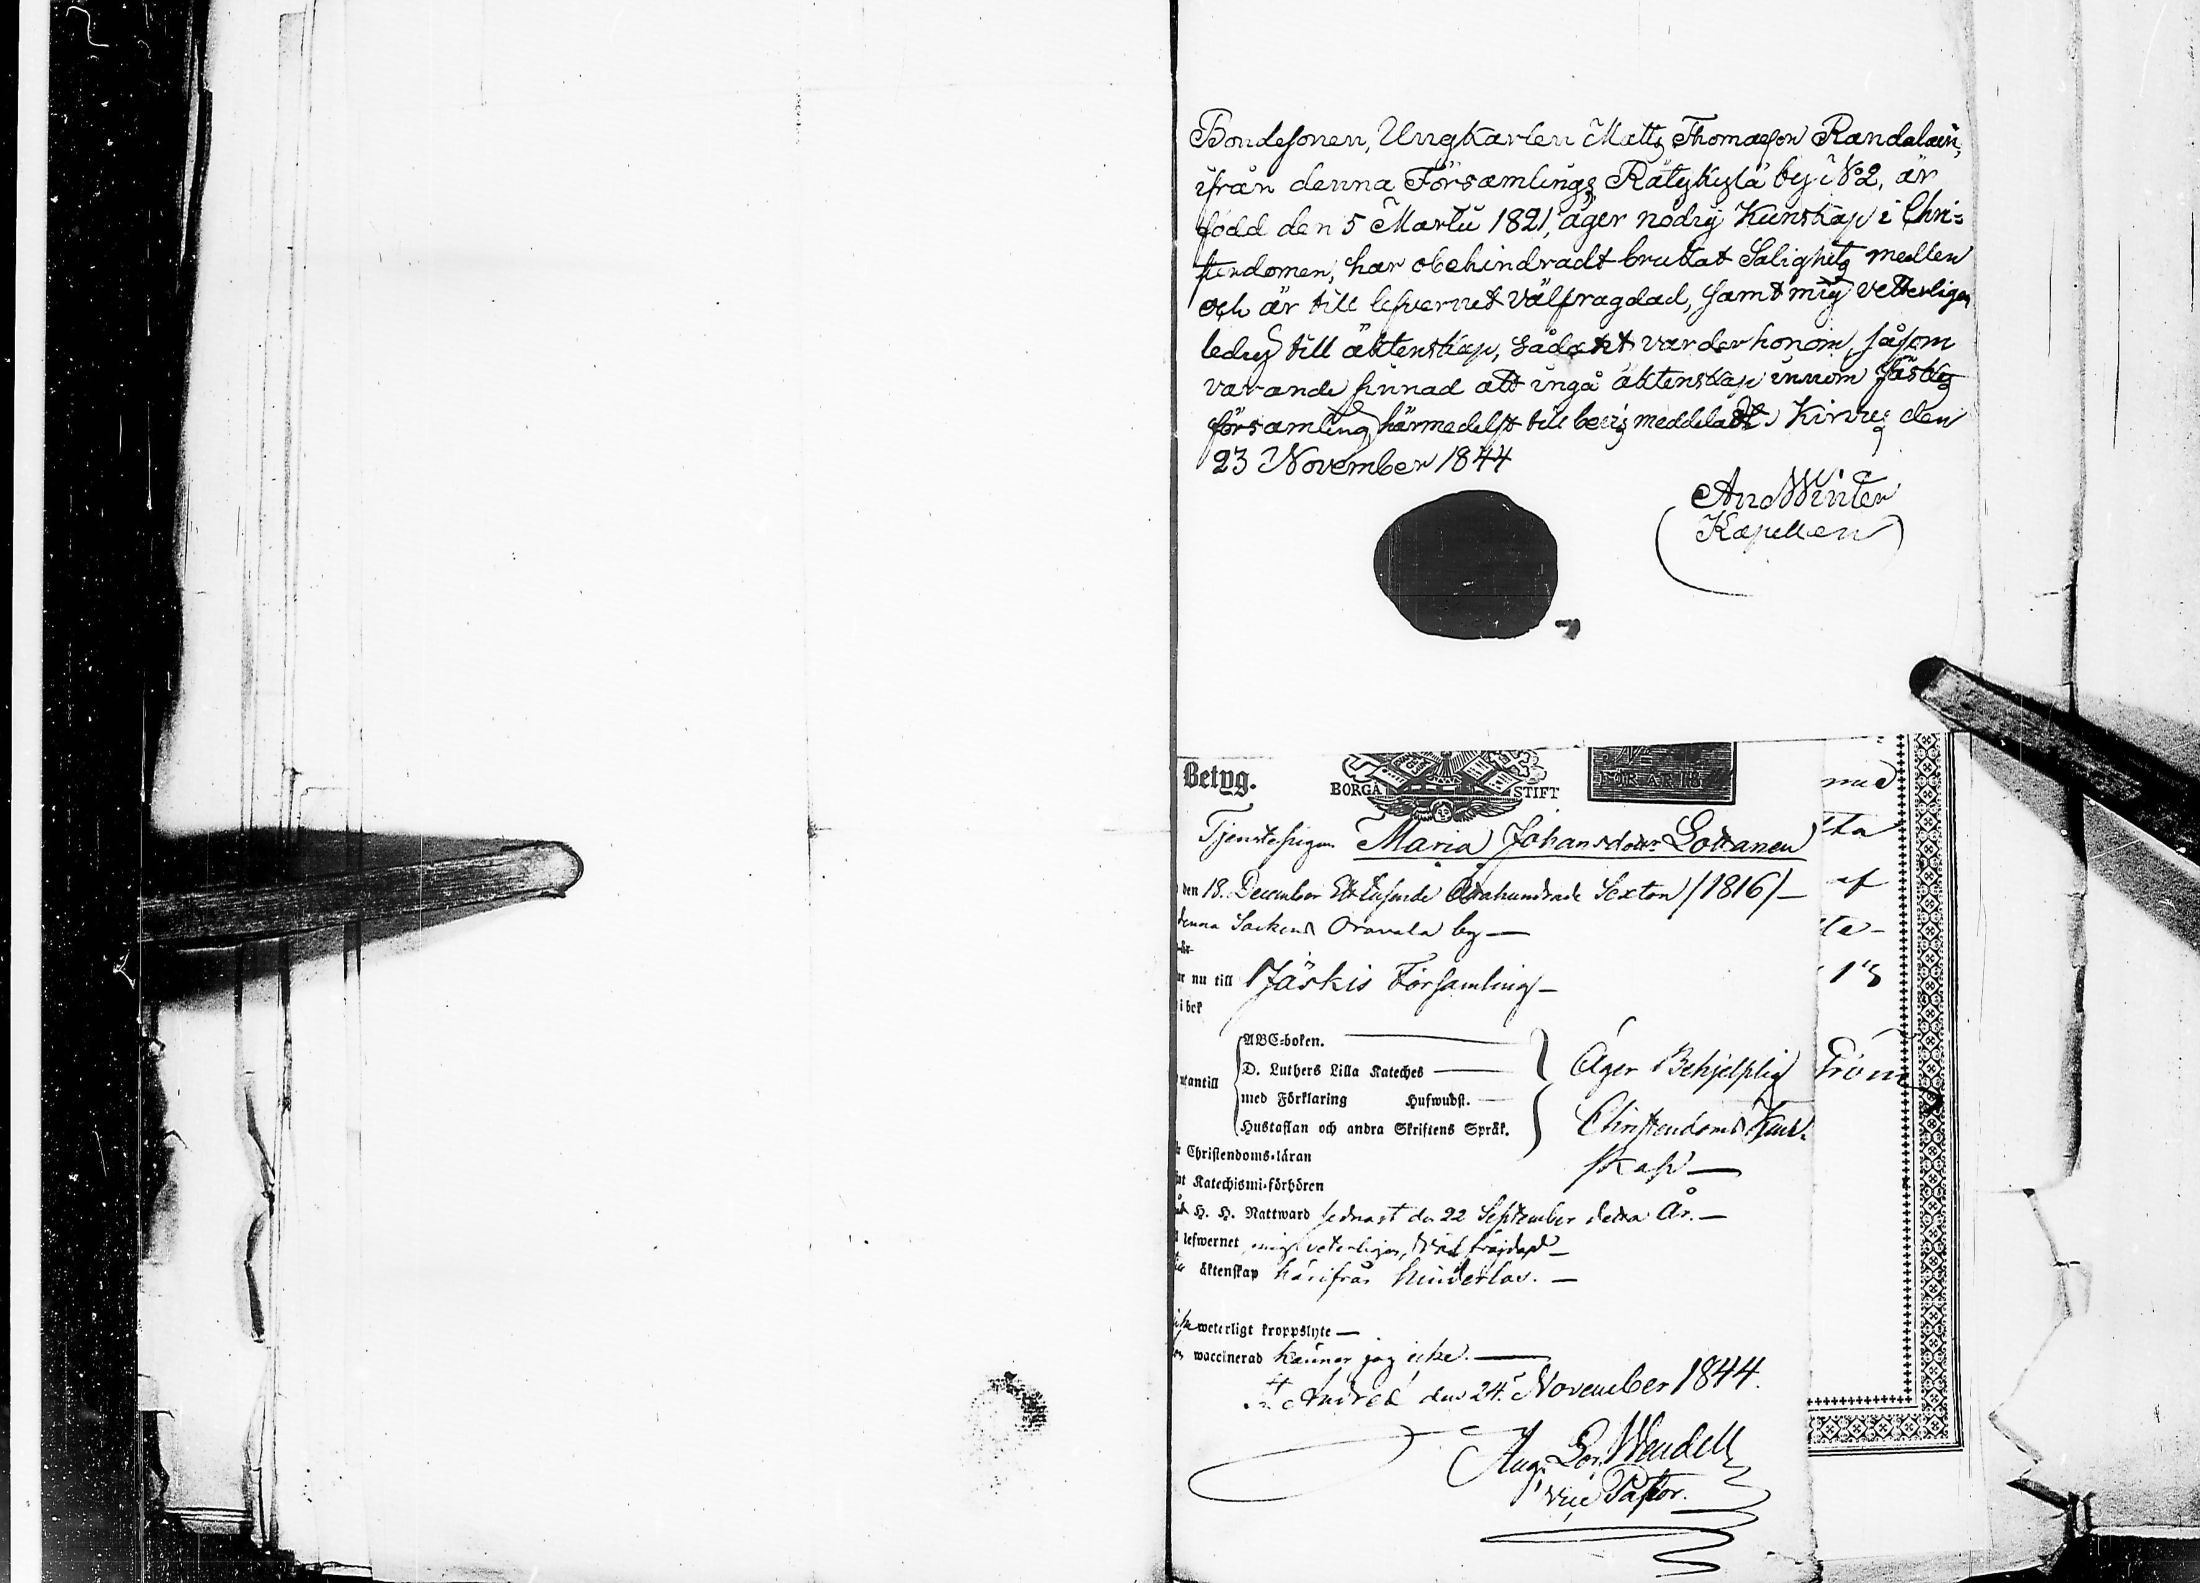 Bondesonen, Ungkarlen Matts Thomasson Randalain,
ifrån denna Församlings Rätykylä by i No 2, är
född den 5 Martii 1821, äger nödig Kunskap i Chri-
stendomen, har obehindradt brukat Salighets medlen
och är till lefvernet välfragdad, samt mig vetterligen
ledig till äktenskap, sådatt varder honom, såsom
varande sinnad att ingå äktenskap innom Jäskis
församling härmedelst till bevis meddeladt. Kirvus den
23 November 1844
And Winter
Kapellan
Betyg.
BORGÅ STIFT
FÖR ÅR 18
med
tta
Tjenstepigan Maria Johansdotter Lottanen
den 18. December Ett tusende Åttahundrade Sexton /1816/ —
af
denna Sockens Oravala by —
te-
nu till Jäskis Församling —
13
i bok
ABC-boken.
D. Luthers Lilla Kateches
utantill
med Förklaring Hufwudst.
Hustaflan och andra Skriftens Språk.
Äger Behjelplig
Christendoms Kun-
skap —
Christendoms-läran
Katechismi-förhören
H. H. Nattward sednast den 22 September detta År. —
lefwernet mig veterligen, väl frejdad —
äktenskap härifrån hinderlös. —
weterligt kroppslyte —
waccinerad känner jag icke. —
St Andreæ den 24. November 1844.
Aug. Lor. Wendell
Vice Pastor.